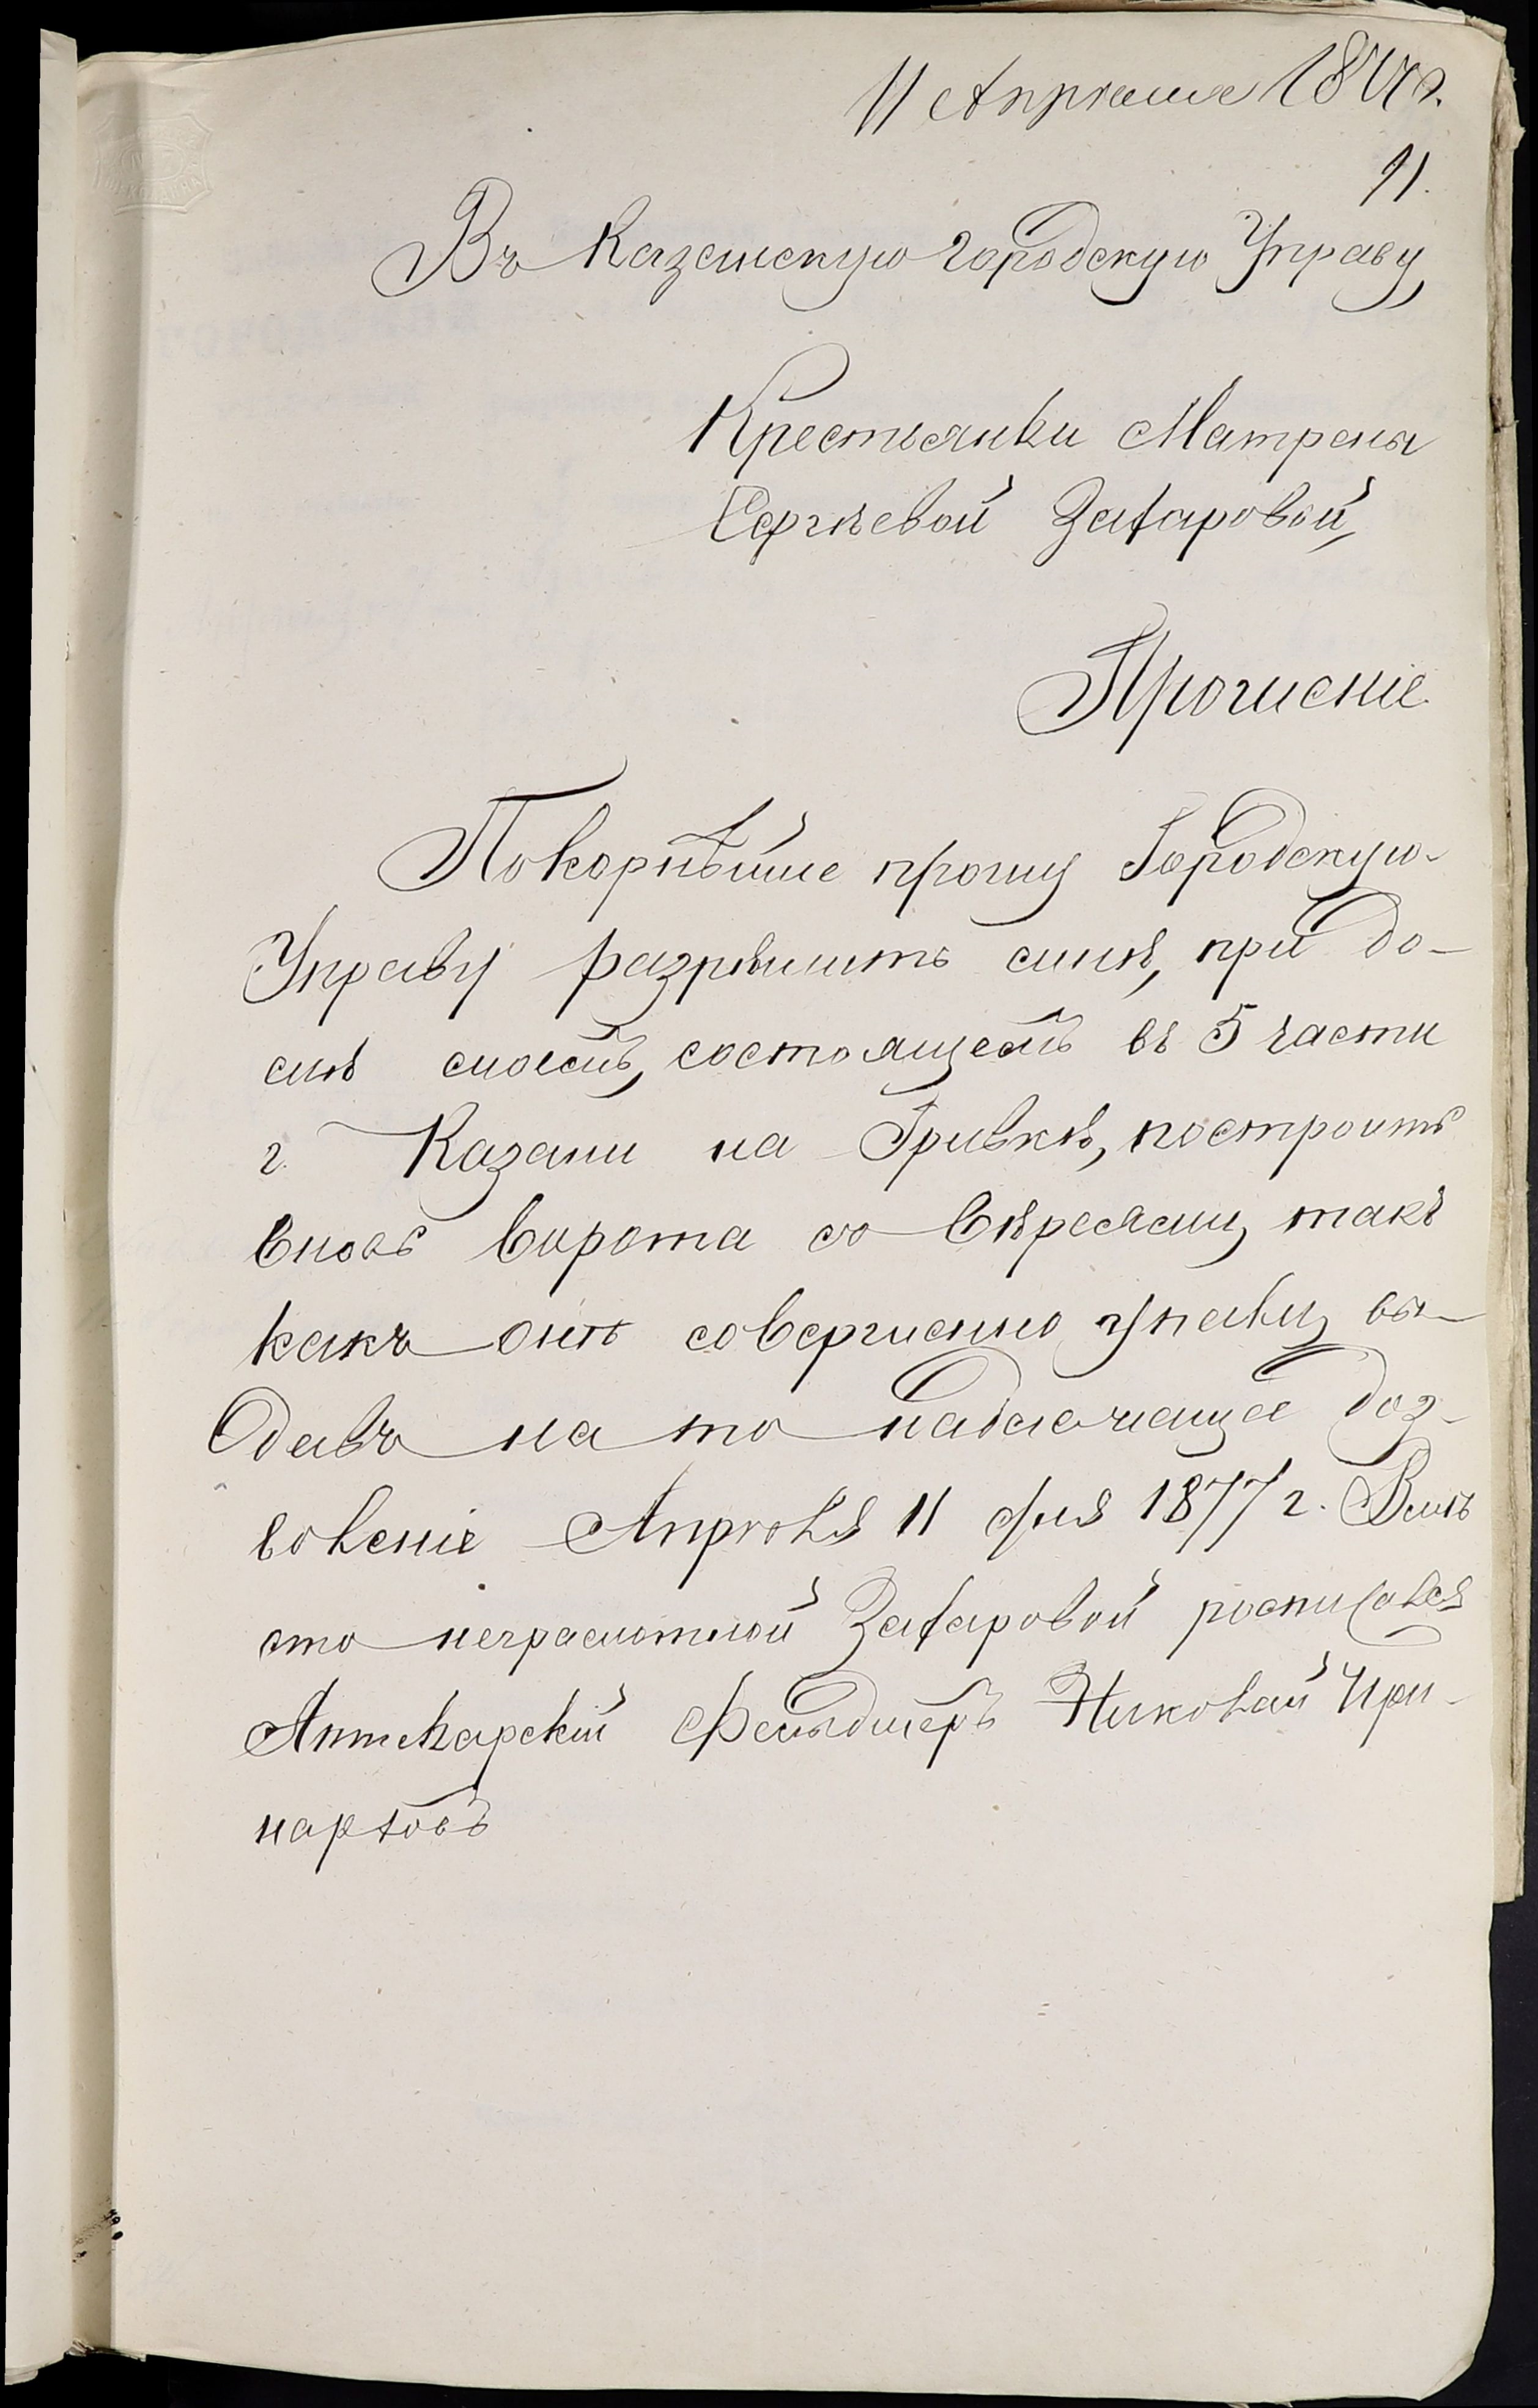 11 Апреля 1877 г.
11.
Въ Казанскую городскую Управу,
Крестьянки Матрены
Сергѣевой Захаровой,
Прошеніе.
Покорнѣйше прошу Городскую
Управу разрѣшить мнѣ, при до-
мѣ моемъ, состоящемъ въ 5 части
г. Казани на Гривкѣ, построить
вновь ворота со верѣями, такъ
какъ онѣ совершенно упали, вы-
давъ на то надлежащее доз-
воленіе Апрѣля 11 дня 1877 г. Вмѣ
сто неграмотной Захаровой росписался
Аптекарскій Фельдшеръ Николай